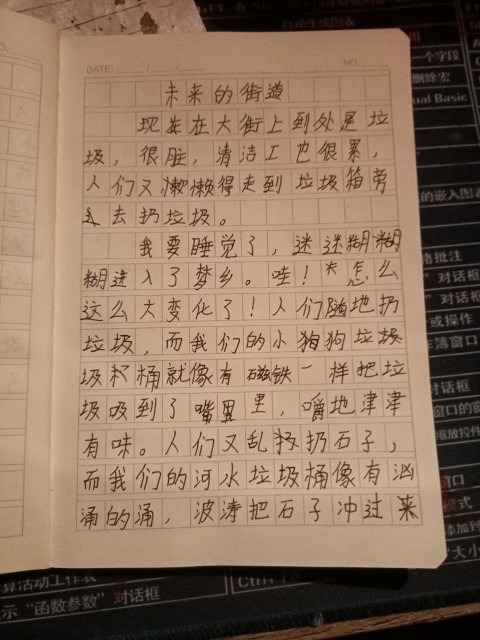 自动生成图表
一个字段
删除宏
ual Basic
DATE: / / NO.
未来的街道
现在在大街上到处是垃
圾，很脏，清洁工也很累，
人们又懒懒得走到垃圾箱旁
去扔垃圾。
我要睡觉了，迷迷糊糊
糊进入了梦乡。哇！怎么
这么大变化了！人们随地扔
垃圾，而我们的小狗狗垃圾
圾桶就像有磁铁一样把垃
圾吸到了嘴里里，嚼地津津
有味。人们又乱扔扔石子，
而我们的河水垃圾桶像有汹
涌的涌，波涛把石子冲过来
的嵌入图表
格批注
对话框
”对话框
或操作
窗口
对话框
窗口的窗口
缩放控件
窗口
模式
添加到
大小
算活动工作表
示“函数参数”对话框